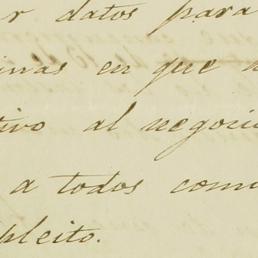 r datos para
inas en que
tivo al negoci
a todos com
pleito.